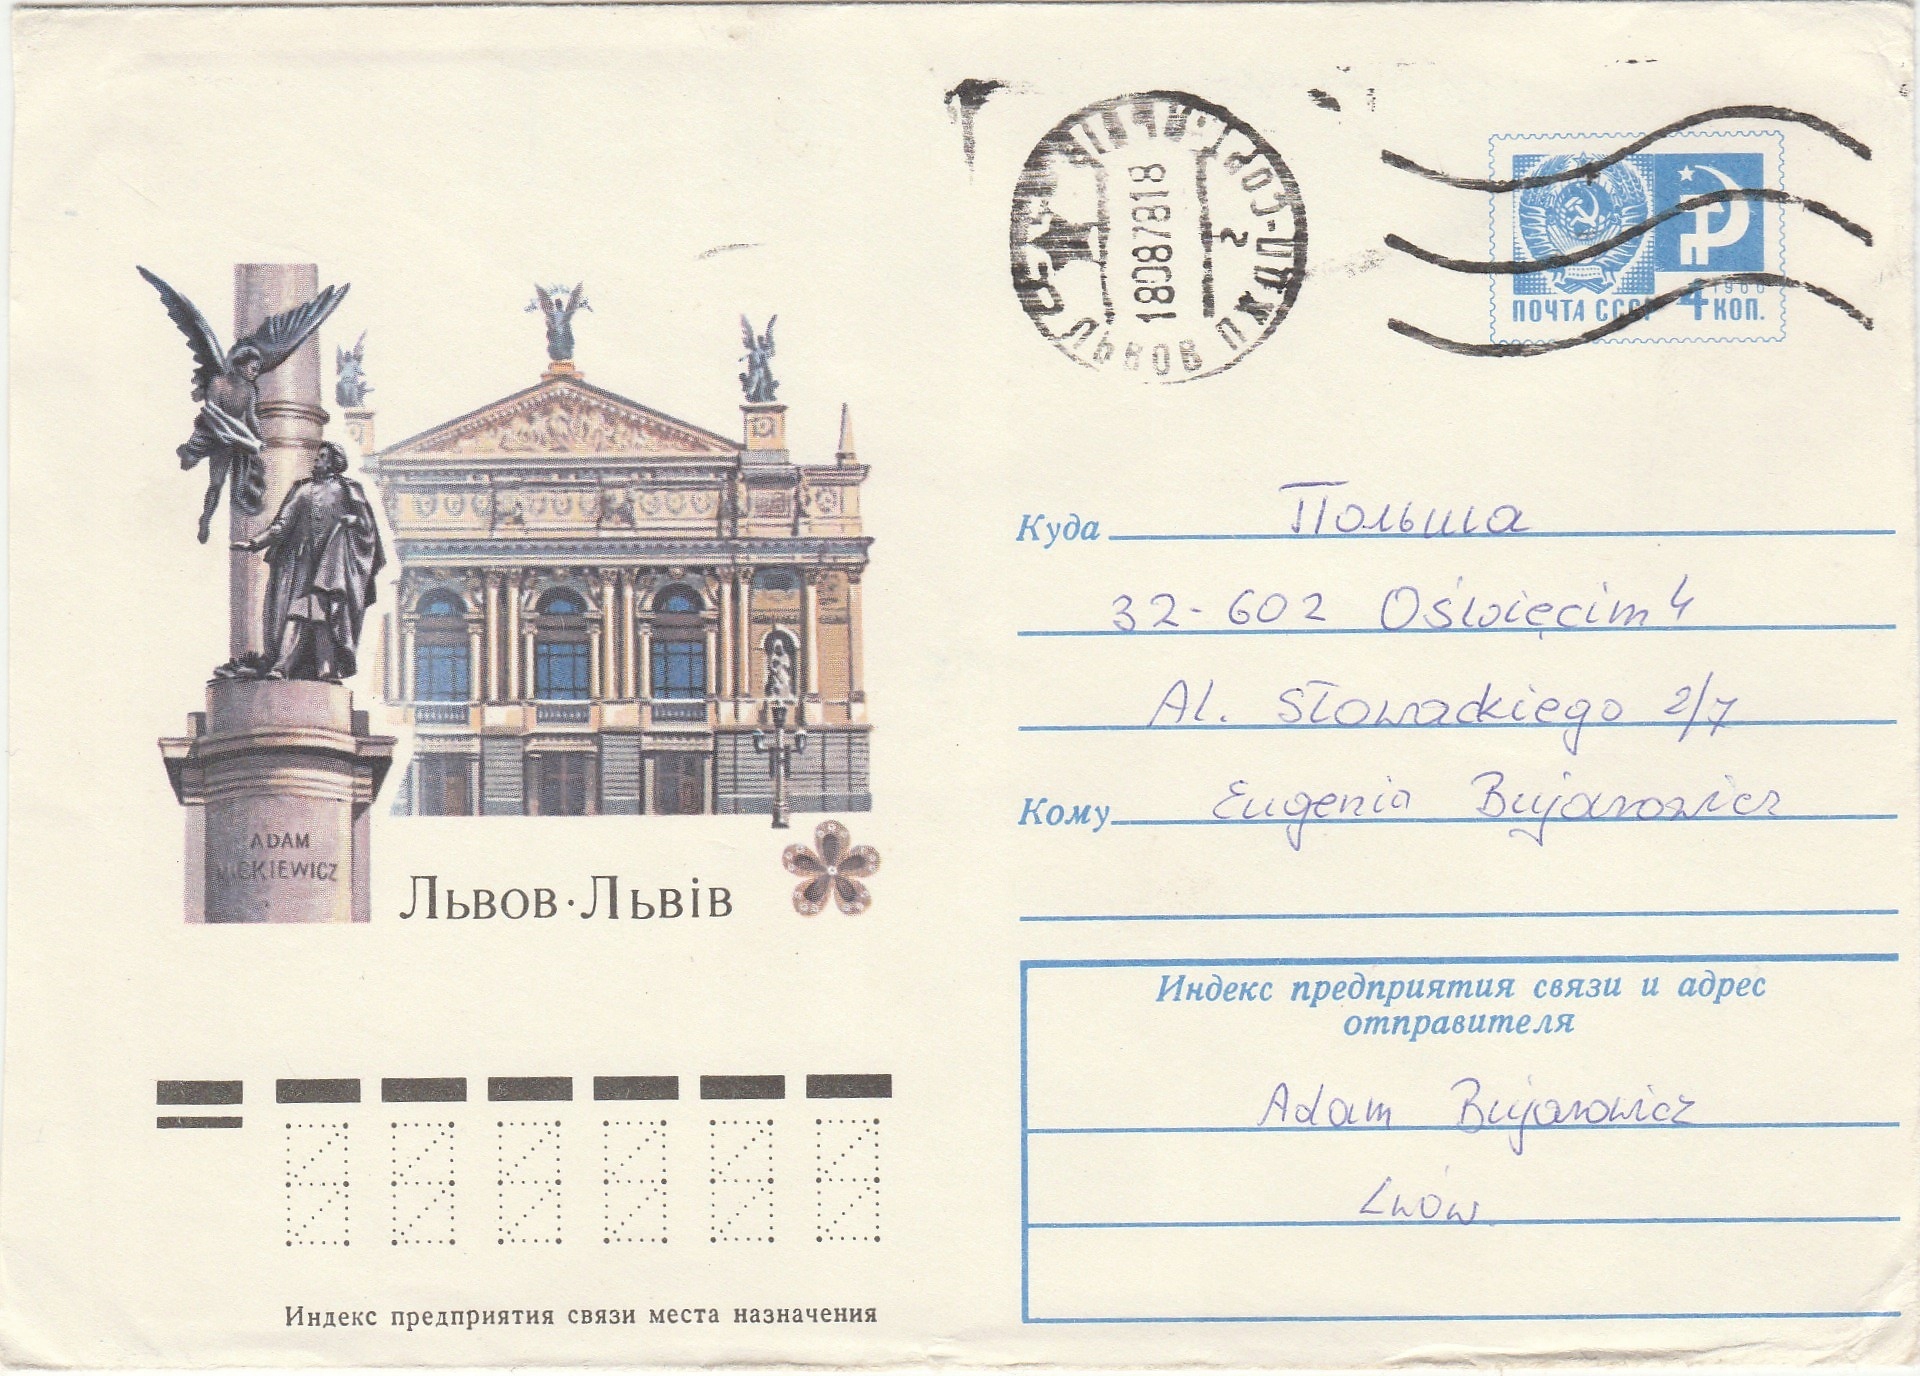 ADAM
MICKIEWICZ
Львов·Львiв
Индекс предприятия связи места назначения
ЛЬВОВ ПЖДП
180878 18
2
1966
ПОЧТА СССР 4 КОП.
Куда Польша
32-602 Oświęcim 4
Al. Słowackiego 2/7
Кому Eugenia Bujarowicz
Индекс предприятия связи и адрес
отправителя
Adam Bujarowicz
Lwów.